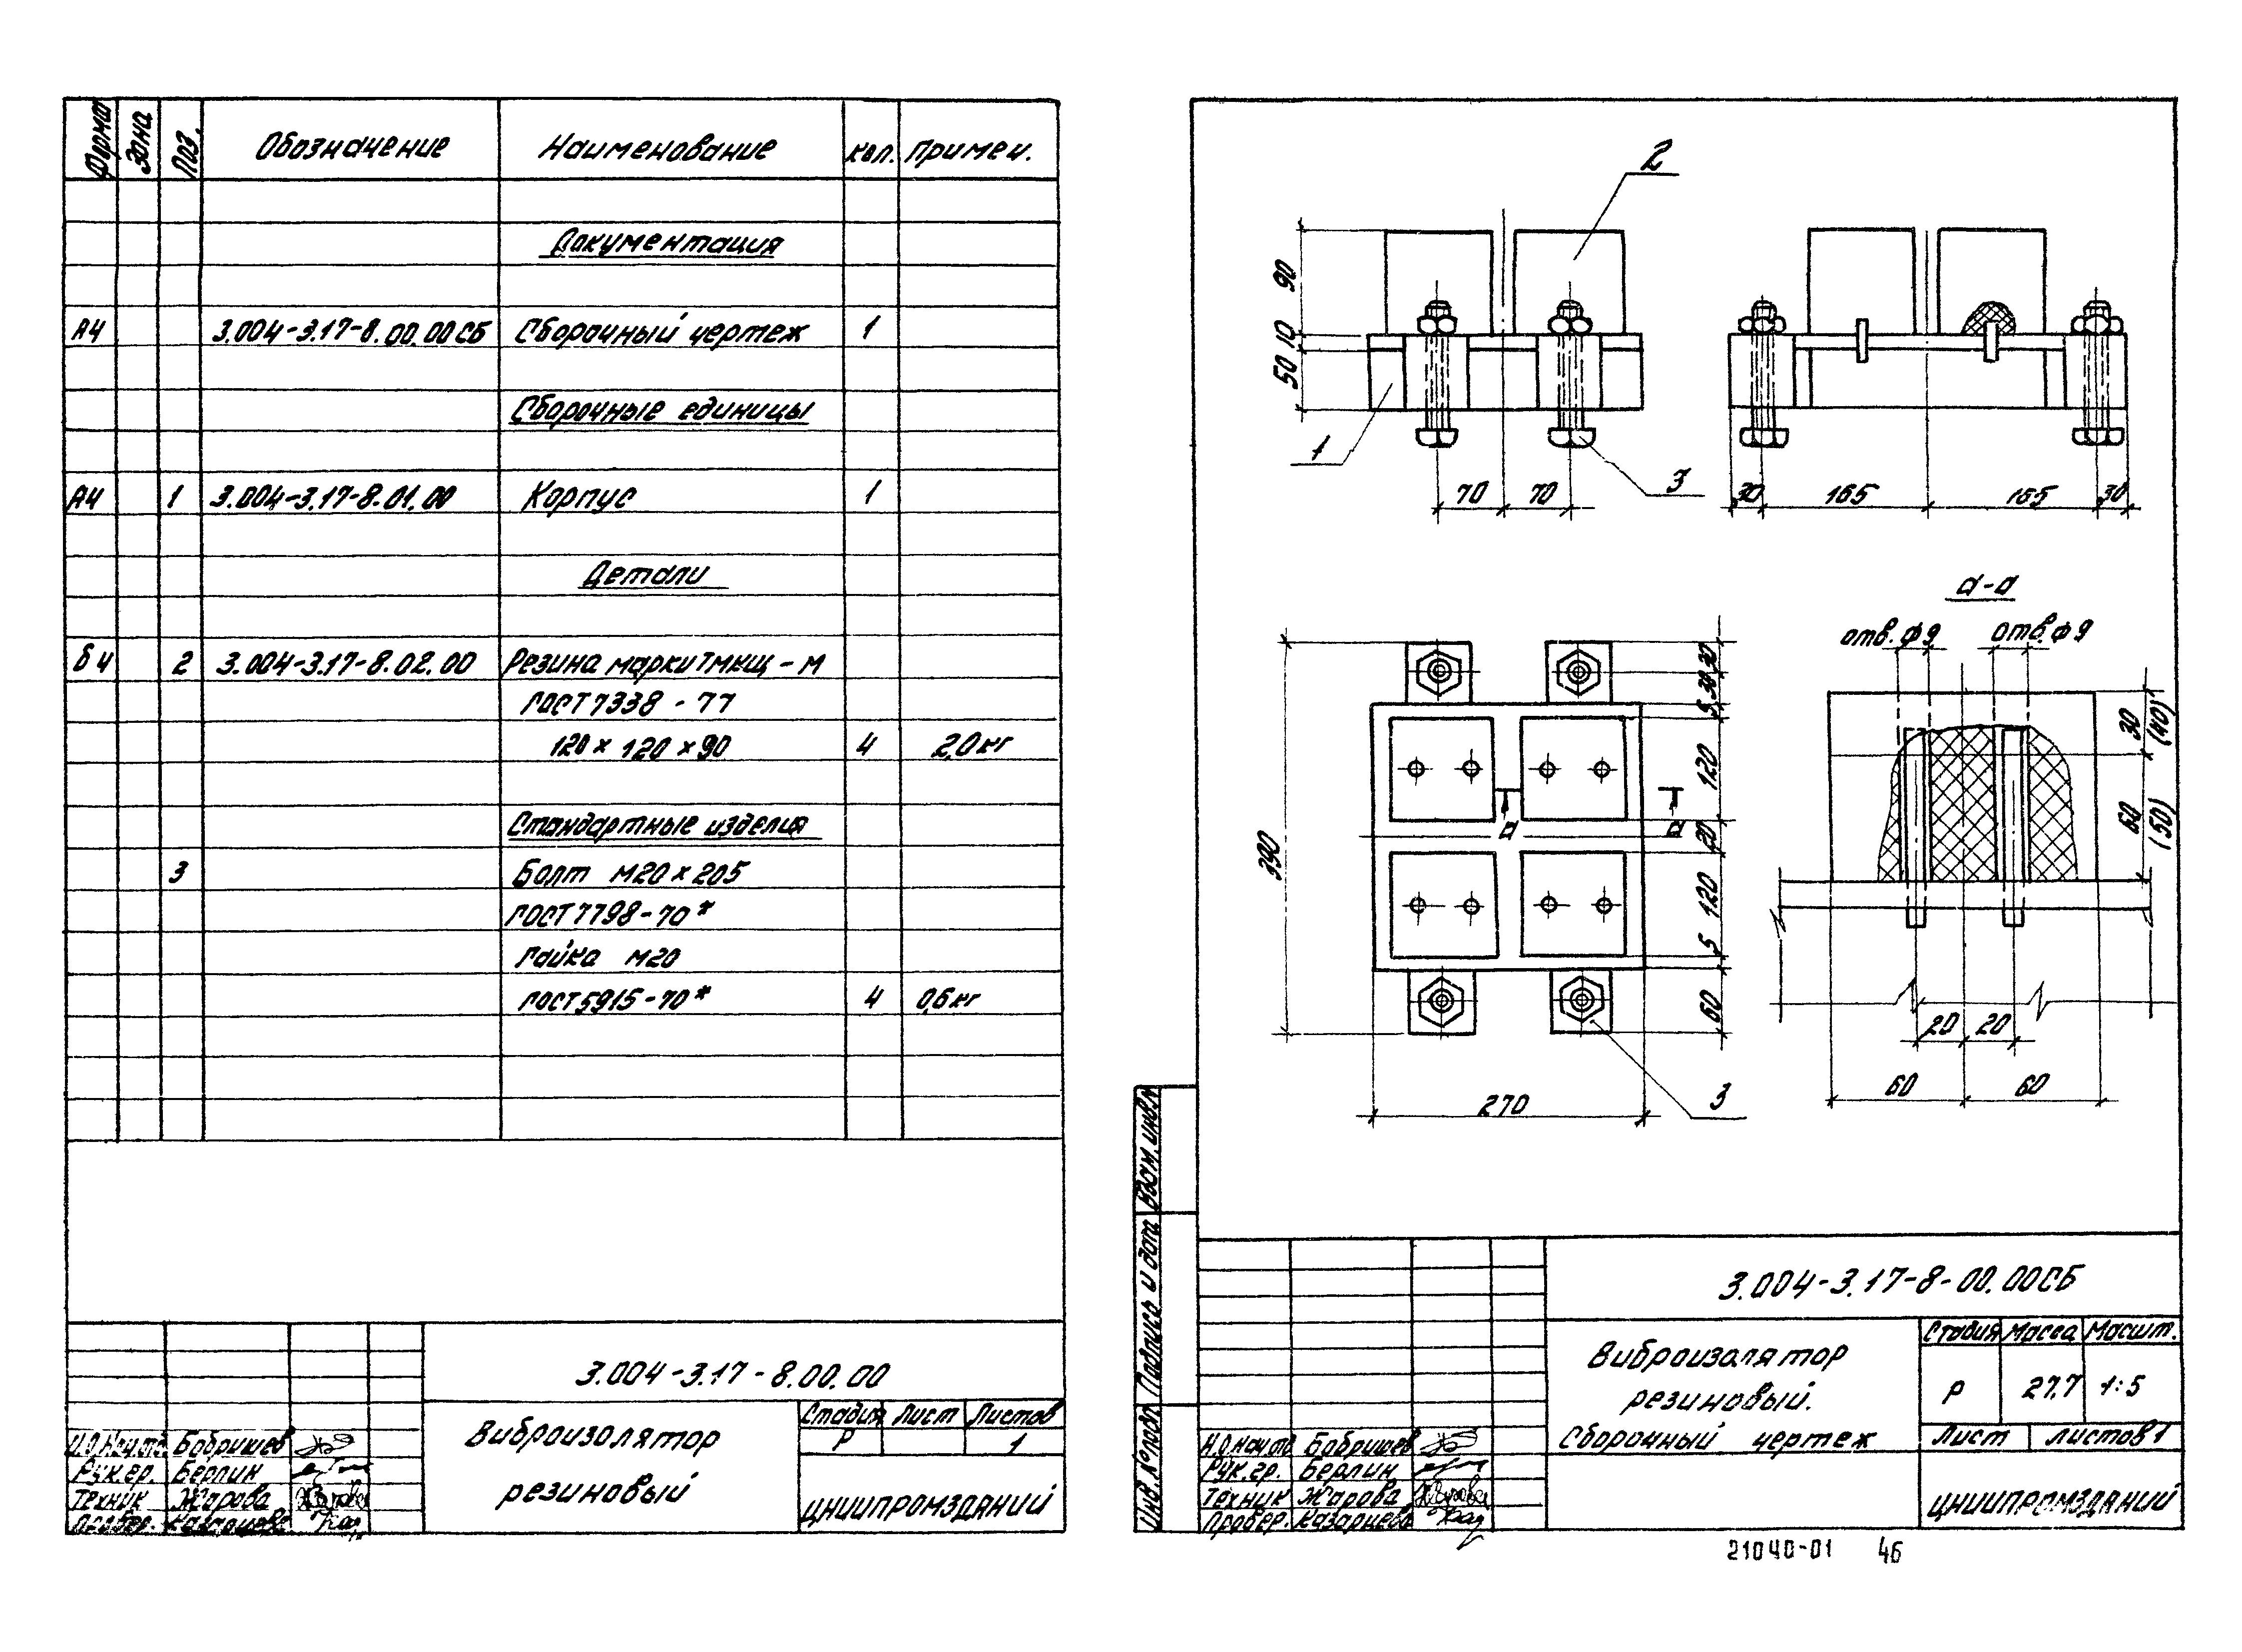 Формат Зона Поз. Обозначение Наименование Кол. Примеч.
Документация
А4 3.004-3.17-8.00.00СБ Сборочный чертеж 1
Сборочные единицы
А4 1 3.004-3.17-8.01.00 Корпус 1
Детали
Б4 2 3.004-3.17-8.02.00 Резина марки ТМКЩ-М
ГОСТ 7338-77
120×120×90 4 2,0кг
Стандартные изделия
3 Болт М20×205
ГОСТ 7798-70*
Гайка М20
ГОСТ 5915-70* 4 0,6кг
3.004-3.17-8.00.00
Виброизолятор
резиновый
Стадия Лист Листов
Р 1
ЦНИИПРОМЗДАНИЙ
И.О.Нач.отд. Бобрышев
Рук.гр. Берлин
Техник Жарова
Провер. Казарцева
2
90
10
50
1
3
70 70
30 165 165 30
а-а
отв.ф9 отв.ф9
30
(40)
60
(50)
20 20
60 60
390
30
30
5
120
20
120
5
60
а а
270
3
Взам.инв.№
Подпись и дата
Инв.№подл.
3.004-3.17-8-00.00СБ
Виброизолятор
резиновый.
Сборочный чертеж
Стадия Масса Масшт.
Р 27,7 1:5
Лист Листов 1
ЦНИИПРОМЗДАНИЙ
И.О.Нач.отд Бобрышев
Рук.гр. Берлин
Техник Жарова
Провер. Казарцева
21040-01 46